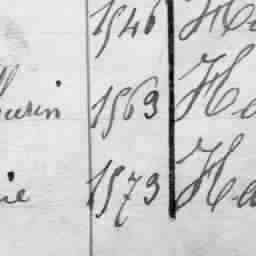 1546 Ha
urin 1563 Ha
ie 1573 Ha